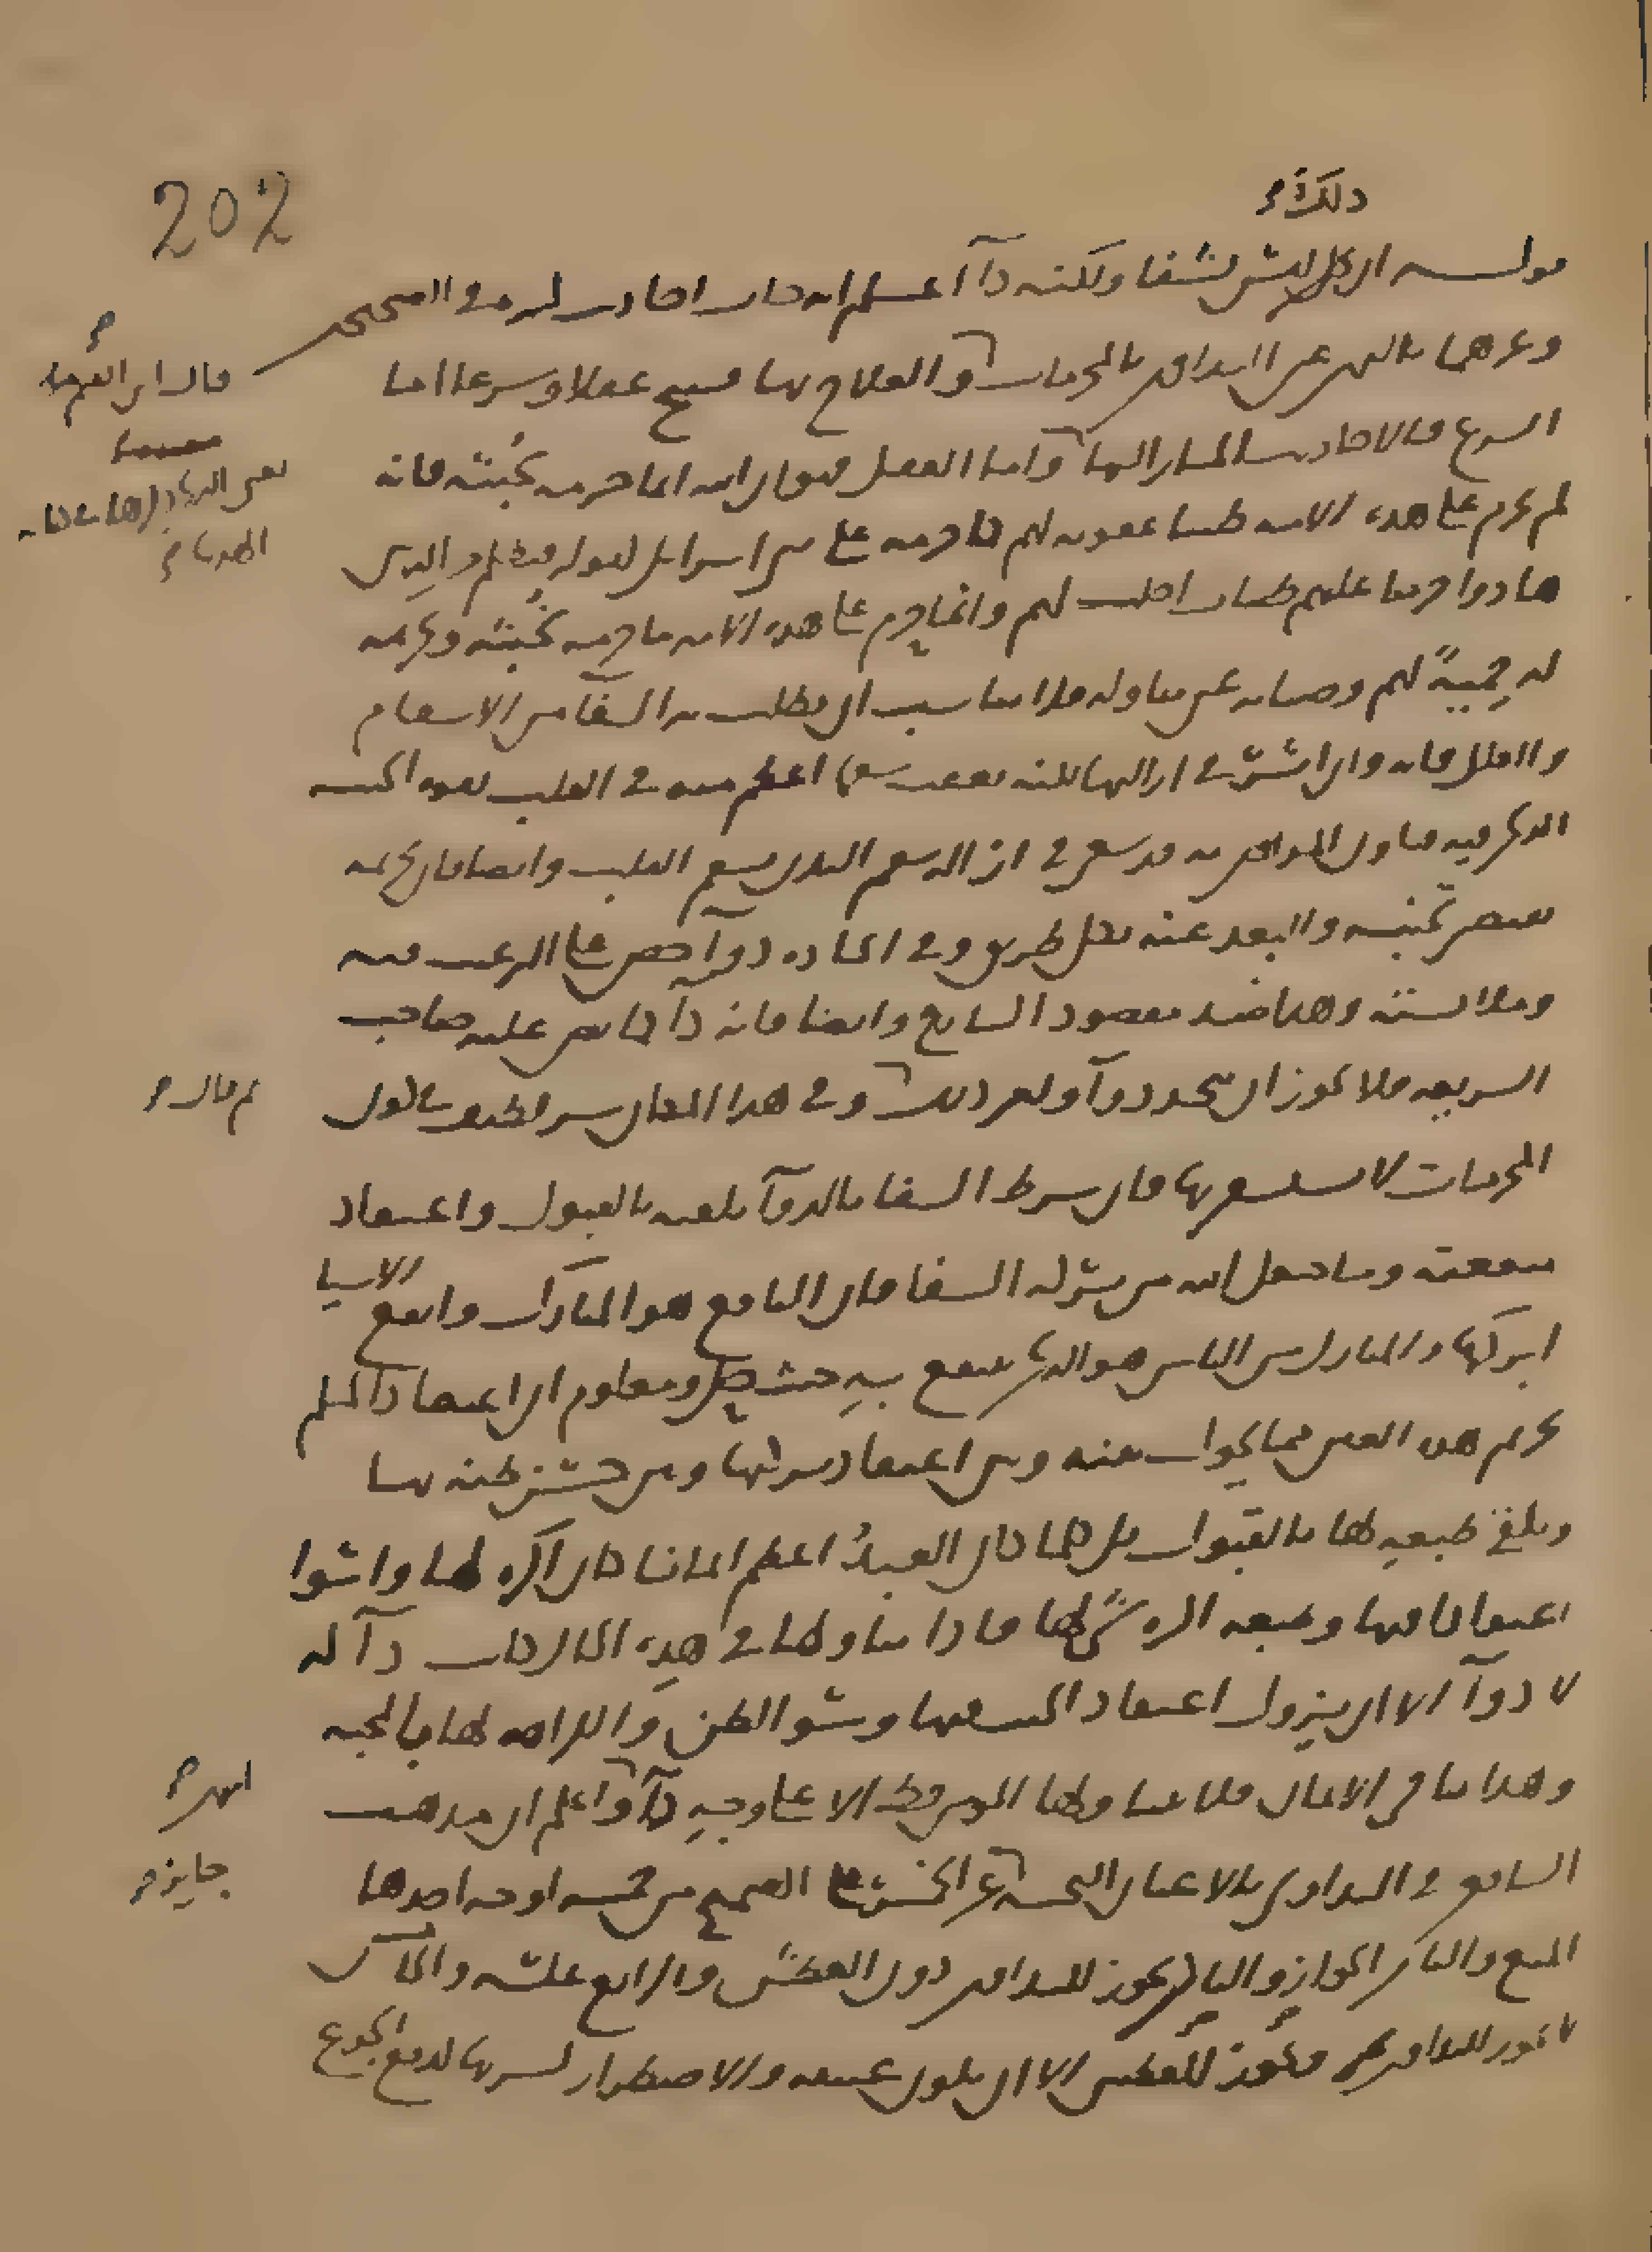 202
ذلك
قوله ان ذلك ليس بشفا ولكنه دآ اعلم انه جات احاديث كثيرة في الصحيحين
وغيرهما بالنهي عن التداوي بالمحرمات والعلاج بها قبيح عقلا وشرعا اما
الشرع فالاحاديث المشار اليها واما العقل فهو ان الله انما حرمه لخبثه فانه
لم يحرم على هذه الامة طيبا عقوبة لهم كما حرمه على بني اسرايل لقوله فبظلم من الذين
هادوا حرمنا عليهم طيبات احلت لهم وانما حرم على هذه الامة ما حرمه لخبثه وتحريمه
له حمية لهم وصيانة عن تناوله فلا يناسب ان يطلب به الشفآ من الاسقام
والعلل فانه وان اثر في ازالتها لكنه يعقب سقما اعظم منه في القلب بقوة الخبث
الذي فيه فيكون المداوى به قد سعى في ازالة سقم البدن بسقم القلب وايضا فان تحريمه
يقتضي تجنبه والبعد عنه بكل طريق وفي اتخاذه دوآ حض على الرغبة فيه
وملابسته وهذا ضد مقصود الشارع وايضا فانه دآ كما نص عليه صاحب
الشريعة فلا يجوز ان يتخذ دوآ ولغير ذلك وفي هذا المقام سر لطيف في كون
المحرمات لا يستشفى بها فان شرط الشفا بالدوآ تلقيه بالقبول واعتقاد
منفعته وما جعل الله من بركة الشفا فان النافع هو المبارك وانفع الاشيا
ابركها والمبارك من الناس هو الذي ينتفع به حيث حل ومعلوم ان اعتقاد المسلم
تحريم هذه العين مما يحول بينه وبين اعتقاد بركتها وبين حسن ظنه بها
وتلقي طبعه لها بالقبول بل كلما كان العبد اعظم ايمانا كان اكره لها واسوا
اعتقادا فيها وطبعه اكره شي لها فاذا تناولها في هذه الحال كانت دآ له
لا دوآ الا ان يزول اعتقاد الخبث فيها وسو الظن والكراهة لها بالمحبة
وهذا ينافي الايمان فلا يتناولها المومن قط الا على وجه دآ واعلم ان مذهب
الشافعي في التداوي بالاعيان النجسة غير الخمر على الصحيح من خمسة اوجه احدها
المنع والثاني الجواز والثالث يجوز للتداوي دون العطش والرابع عكسه والخامس
لا يجوز للتداوي ويجوز للعطش الا ان يكون عتيقه والاضطرار لشربها لدفع الجوع
قال ابن القيم
يعني
ثم قال
انتهى
جايز